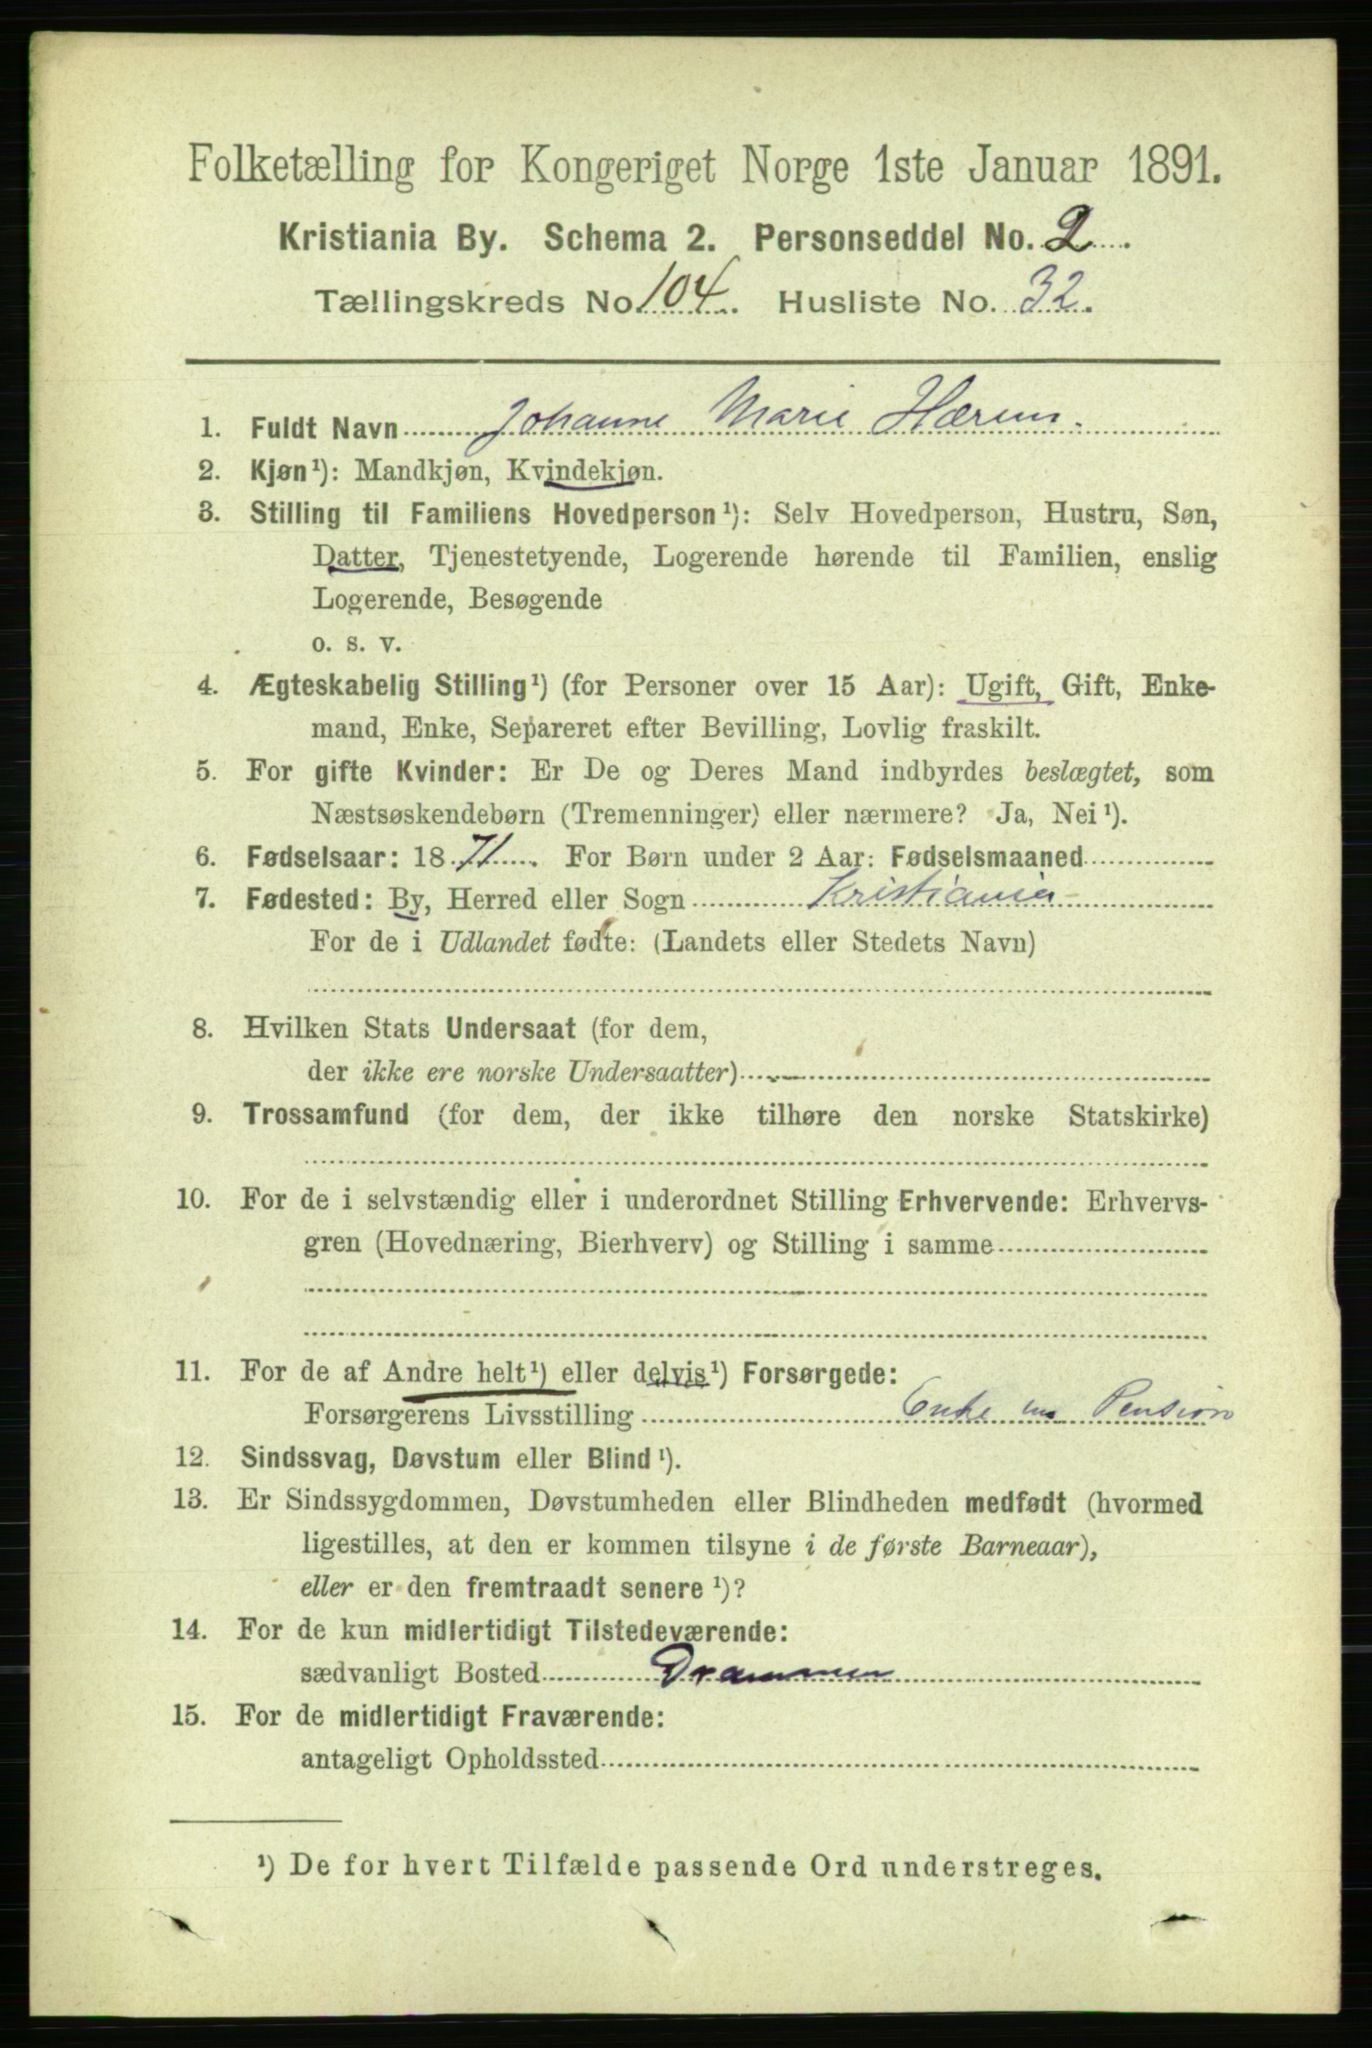 Folketælling for Kongeriget Norge 1ste Januar 1891.
Kristiania By. Schema 2. Personseddel No. 2.
Tællingskreds No. 104. Husliste No. 32.
1. Fuldt Navn Johanne Marie Hærem.
2. Kjøn¹): Mandkjøn, Kvindekjøn.
3. Stilling til Familiens Hovedperson¹): Selv Hovedperson, Hustru, Søn,
Datter, Tjenestetyende, Logerende hørende til Familien, enslig
Logerende, Besøgende
o. s. v.
4. Ægteskabelig Stilling¹) (for Personer over 15 Aar): Ugift, Gift, Enke-
mand, Enke, Separeret efter Bevilling, Lovlig fraskilt.
5. For gifte Kvinder: Er De og Deres Mand indbyrdes beslægtet, som
Næstsøskendebørn (Tremenninger) eller nærmere? Ja, Nei¹).
6. Fødselsaar: 1871. For Børn under 2 Aar: Fødselsmaaned
7. Fødested: By, Herred eller Sogn Kristiania
For de i Udlandet fødte: (Landets eller Stedets Navn)
8. Hvilken Stats Undersaat (for dem,
der ikke ere norske Undersaatter)
9. Trossamfund (for dem, der ikke tilhøre den norske Statskirke)
10. For de i selvstændig eller i underordnet Stilling Erhvervende: Erhvervs-
gren (Hovednæring, Bierhverv) og Stilling i samme
11. For de af Andre helt¹) eller delvis¹) Forsørgede:
Forsørgerens Livsstilling Enke m Pension
12. Sindssvag, Døvstum eller Blind¹).
13. Er Sindssygdommen, Døvstumheden eller Blindheden medfødt (hvormed
ligestilles, at den er kommen tilsyne i de første Barneaar),
eller er den fremtraadt senere¹)?
14. For de kun midlertidigt Tilstedeværende:
sædvanligt Bosted Drammen
15. For de midlertidigt Fraværende:
antageligt Opholdssted
¹) De for hvert Tilfælde passende Ord understreges.